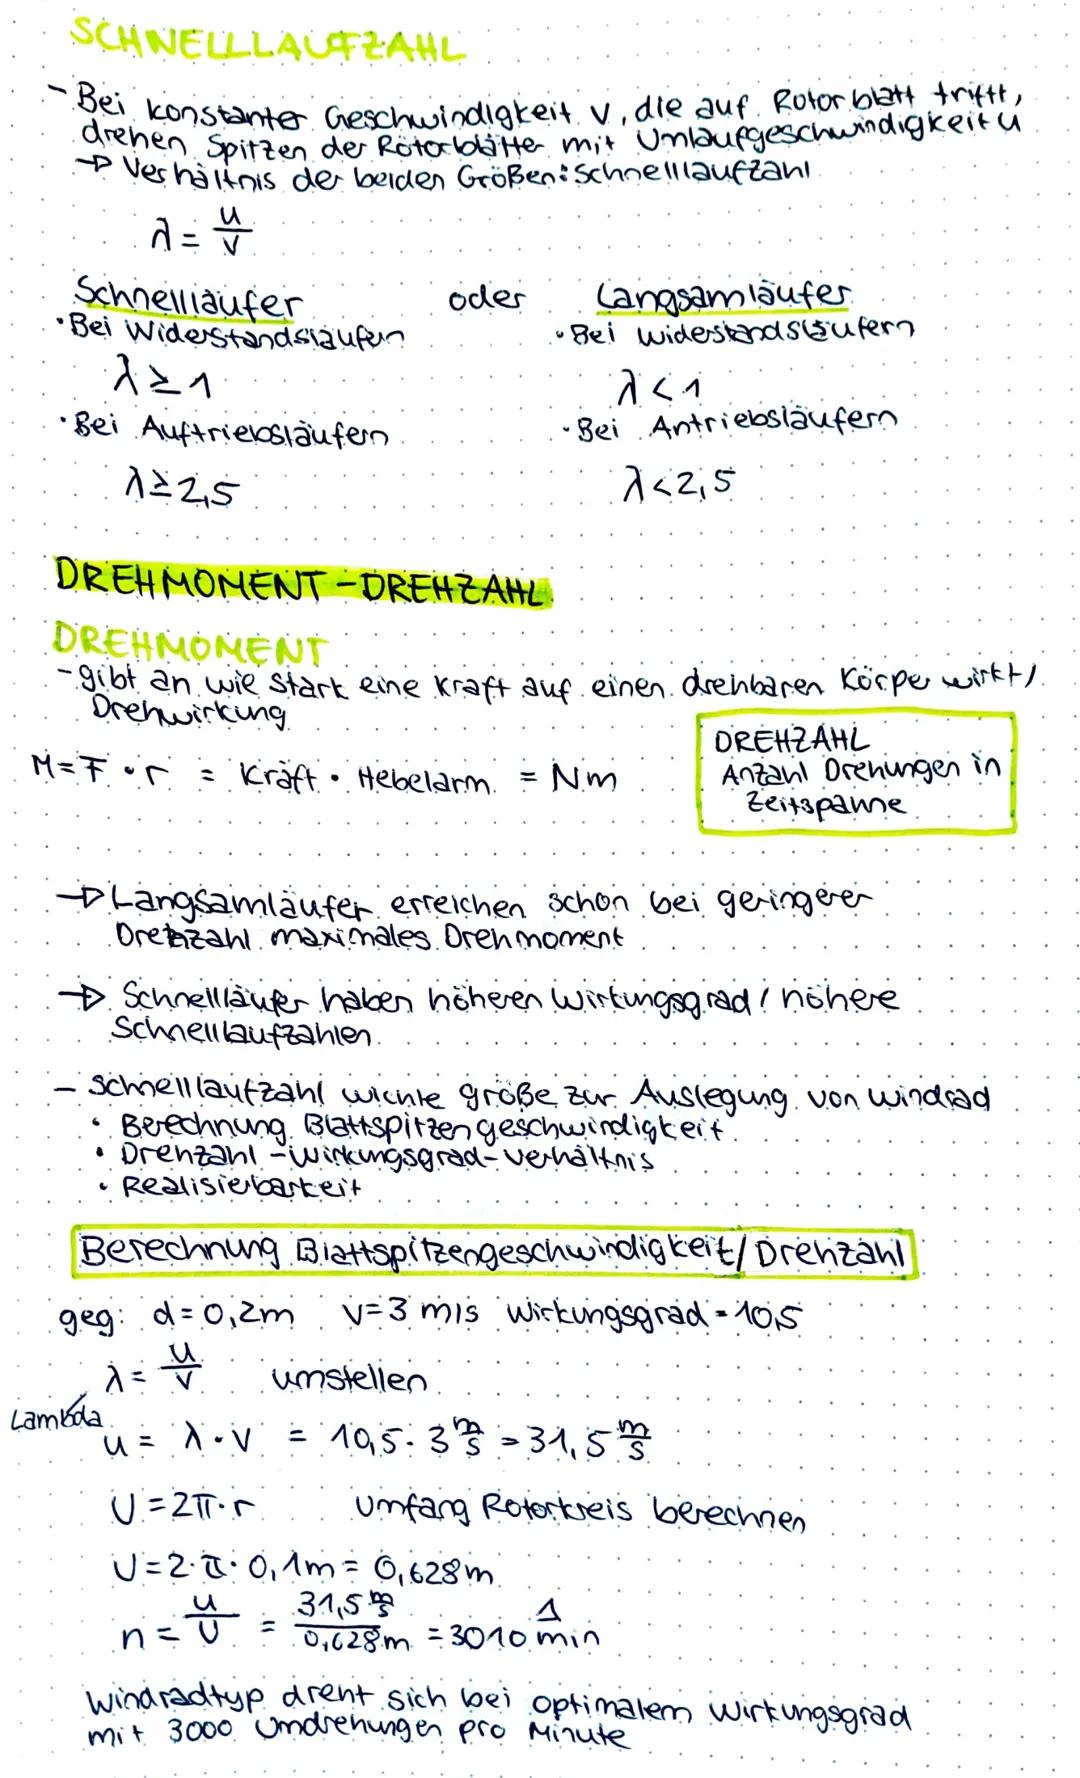 SCHNELLLAUFZAHL
- Bei konstanter Geschwindigkeit v, die auf Rotorblatt trifft,
drehen Spitzen der Rotorblätter mit Umlaufgeschwindigkeit u
→ Verhältnis der beiden Größen: Schnelllaufzahl
λ = u/v
Schnellläufer oder Langsamläufer
• Bei Widerstandsläufern • Bei Widerstandsläufern
λ ≥ 1 λ < 1
• Bei Auftriebsläufern • Bei Antriebsläufern
λ ≥ 2,5 λ < 2,5
DREHMOMENT - DREHZAHL
DREHMOMENT
- gibt an wie stark eine Kraft auf einen drehbaren Körper wirkt /
Drehwirkung
DREHZAHL
Anzahl Drehungen in
Zeitspanne
M = F · r = Kraft · Hebelarm = Nm
→ Langsamläufer erreichen schon bei geringerer
Drehzahl maximales Drehmoment
→ Schnellläufer haben höheren Wirkungsgrad / höhere
Schnelllaufzahlen
- Schnelllaufzahl wichte größe zur Auslegung von Windrad
• Berechnung Blattspitzengeschwindigkeit
• Drehzahl - Wirkungsgrad - Verhältnis
• Realisierbarkeit
Berechnung Blattspitzengeschwindigkeit / Drehzahl
geg: d = 0,2m v = 3 m/s Wirkungsgrad = 10,5
λ = u/v umstellen
Lambda
u = λ · v = 10,5 · 3 m/s = 31,5 m/s
U = 2π · r Umfang Rotorkreis berechnen
U = 2 · π · 0,1m = 0,628m
n = u/U = 31,5 m/s / 0,628m = 3010 1/min
Windradtyp dreht sich bei optimalem Wirkungsgrad
mit 3000 Umdrehungen pro Minute